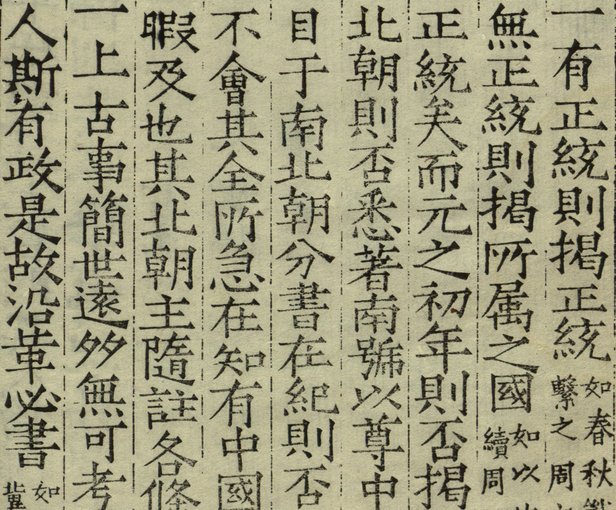 一有正統則揭正統如春秋繫之周
無正統則揭所属之國如以續周
正統矣而元之初年則否揭
北朝則否悉著南號以尊中
目于南北朝分書在紀則否
不會其全所急在知有中國
暇及也其北朝主隨註各條
一上古事簡世遠夘無可考
人斯有政是故沿革必書如冀